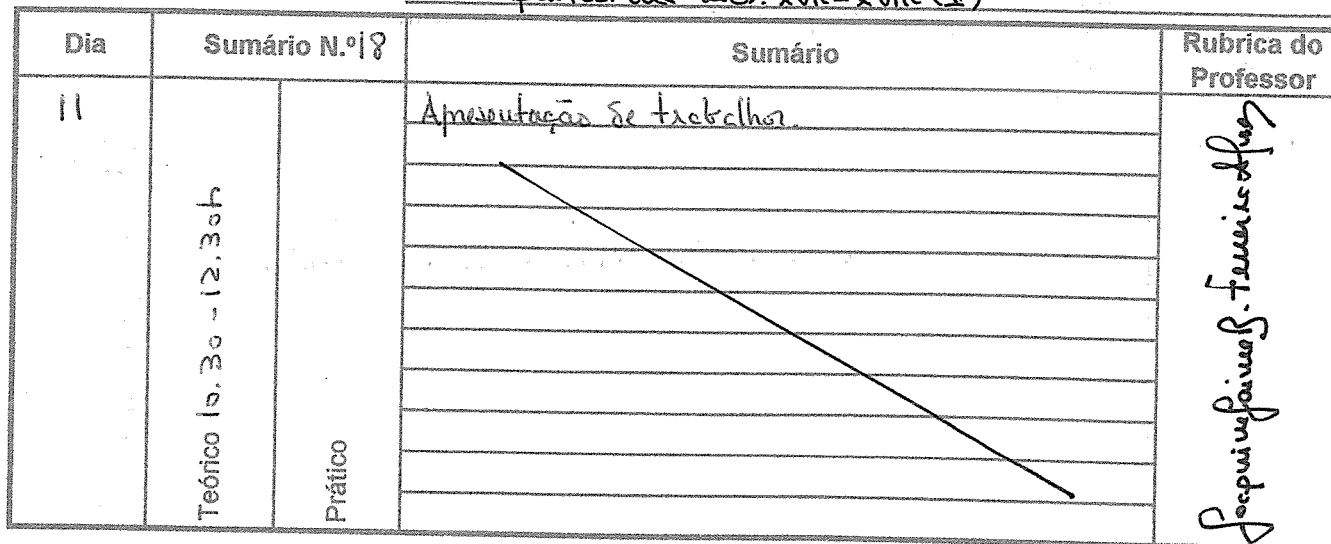 sécs. XVII-XVIII (I)
Dia
Sumário N.º 18
Sumário
Rubrica do
Professor
11
Teórico 10.30 - 12.30h
Prático
Apresentação de trabalhos.
Joaquim Jaime B. Ferreira Alves